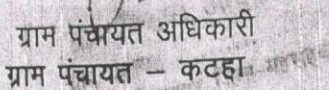 ग्राम पंचायत अधिकारी
ग्राम पंचायत – कटहा